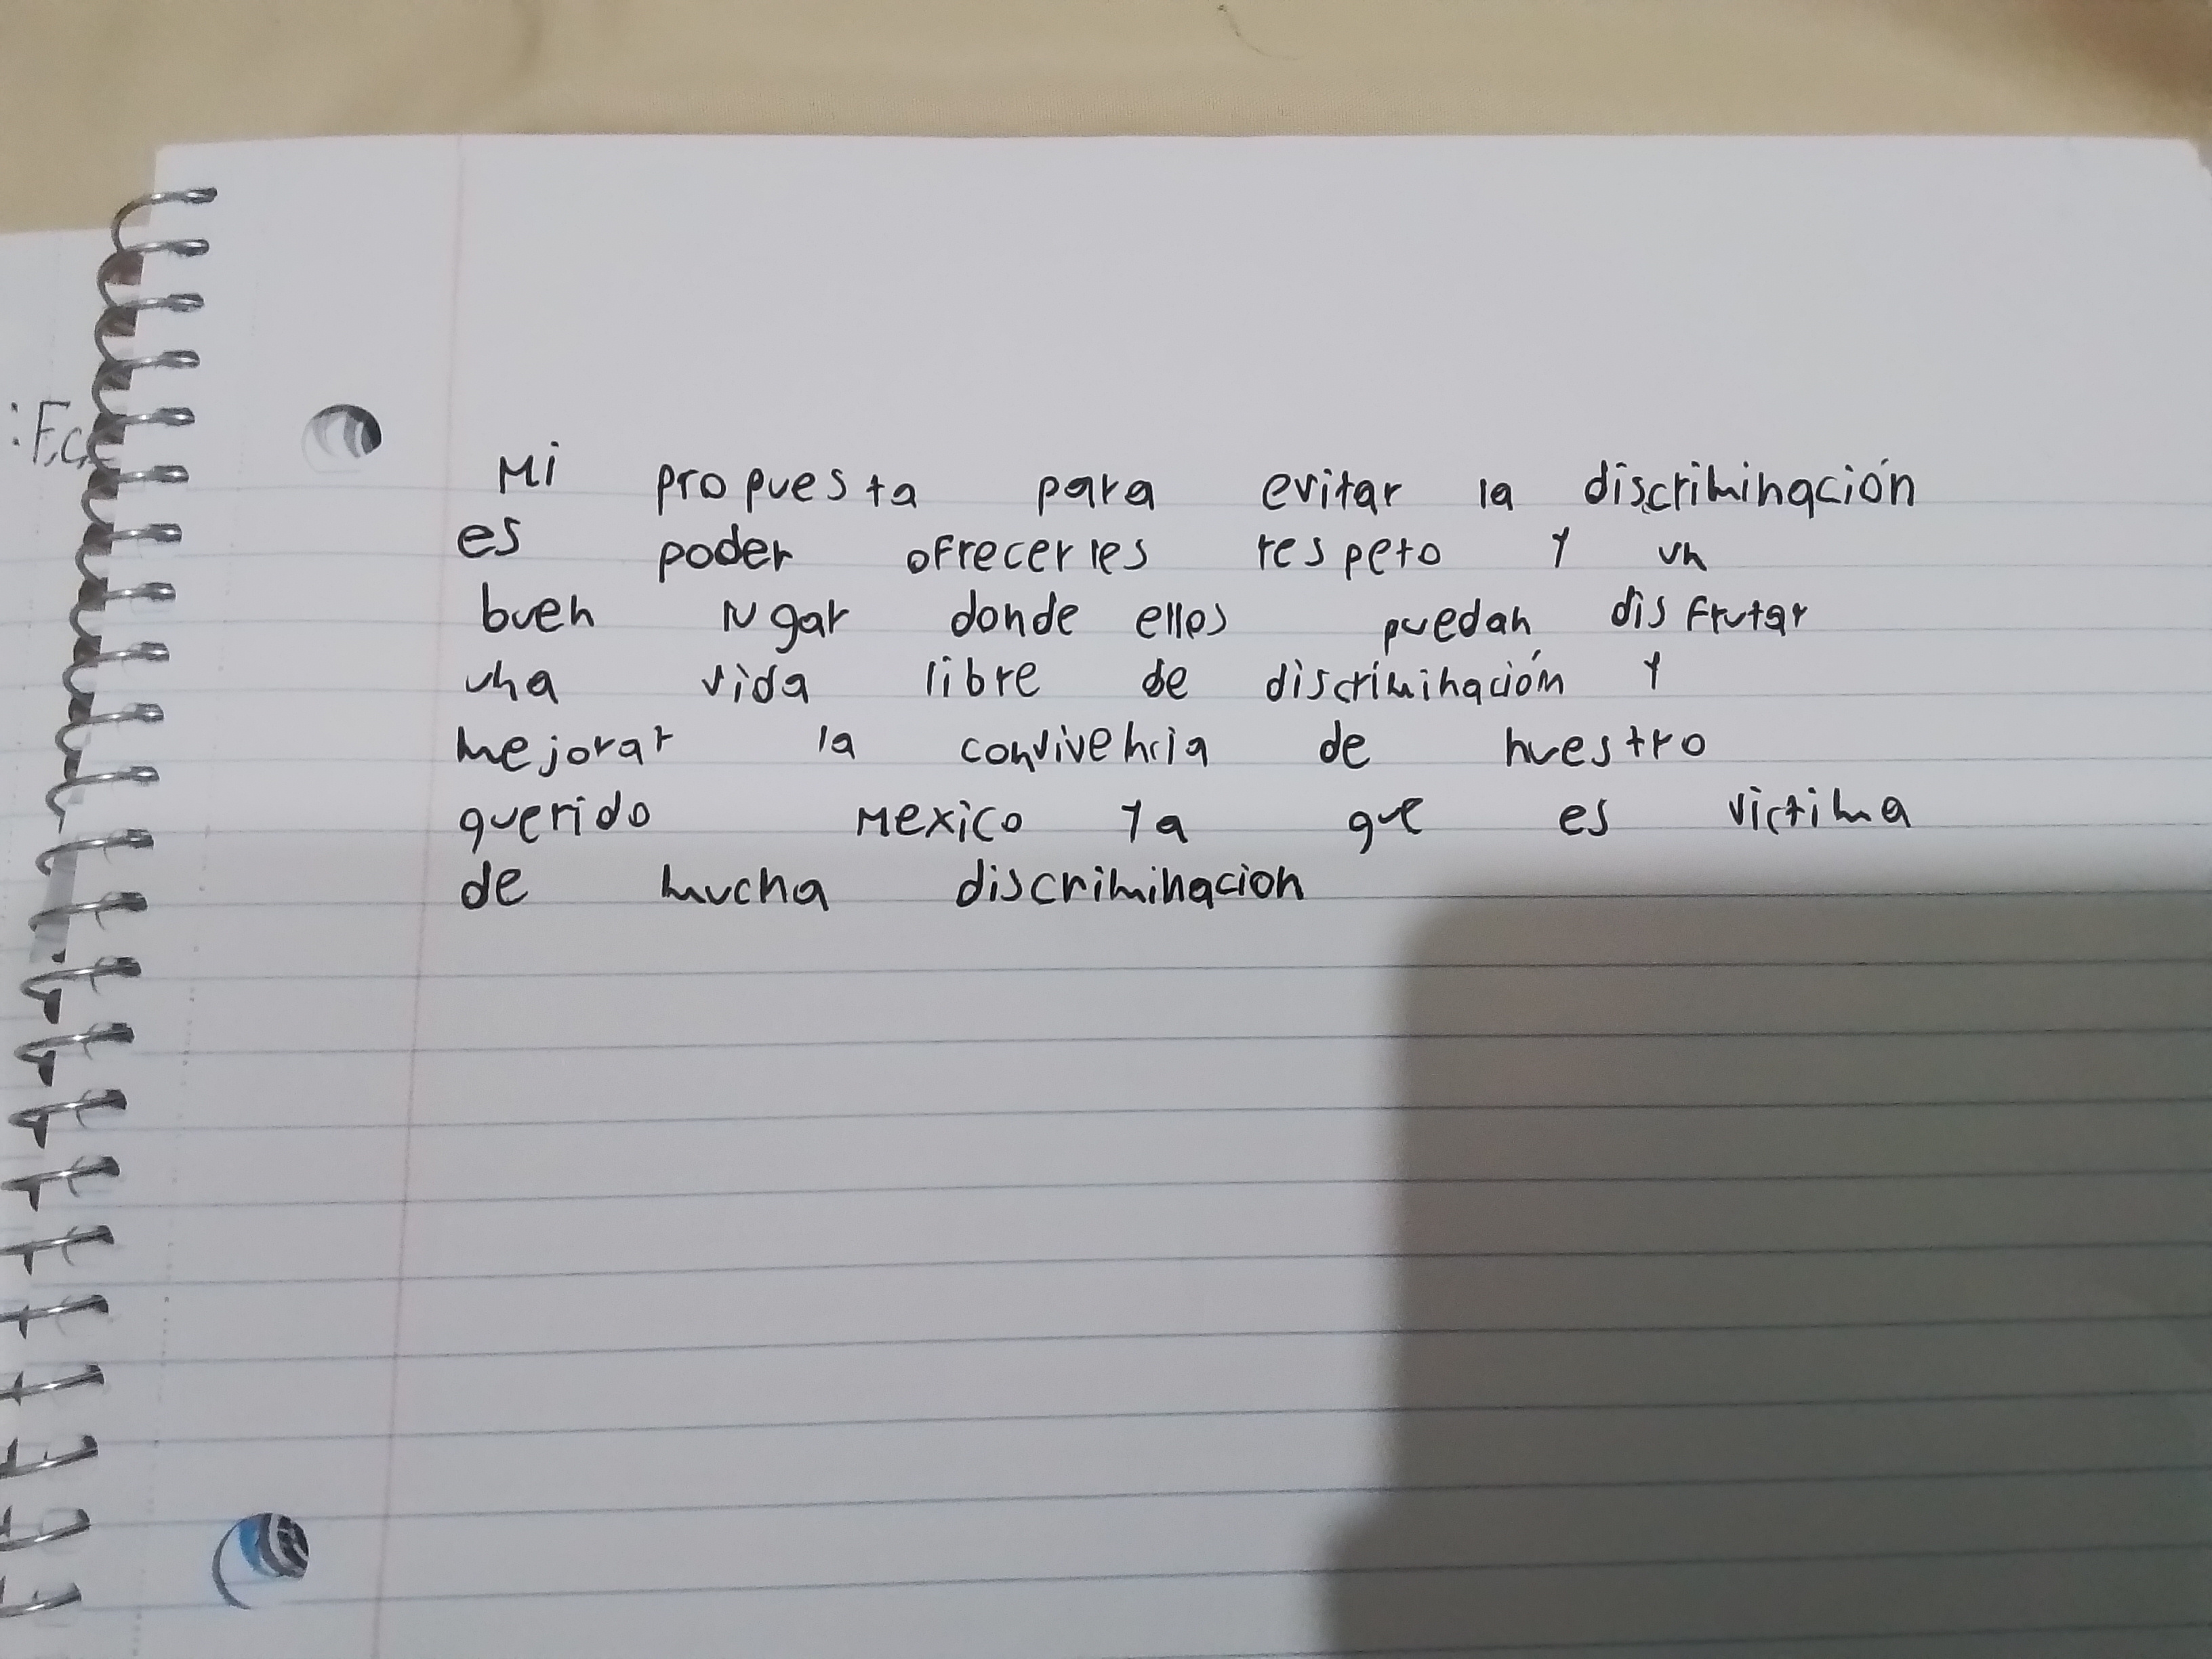 : F,c
Mi propuesta para evitar la discriminación
es poder ofrecerles respeto y un
buen lugar donde ellos puedan disfrutar
una vida libre de discriminación y
mejorar la convivencia de nuestro
querido Mexico ya que es victima
de mucha discriminacion